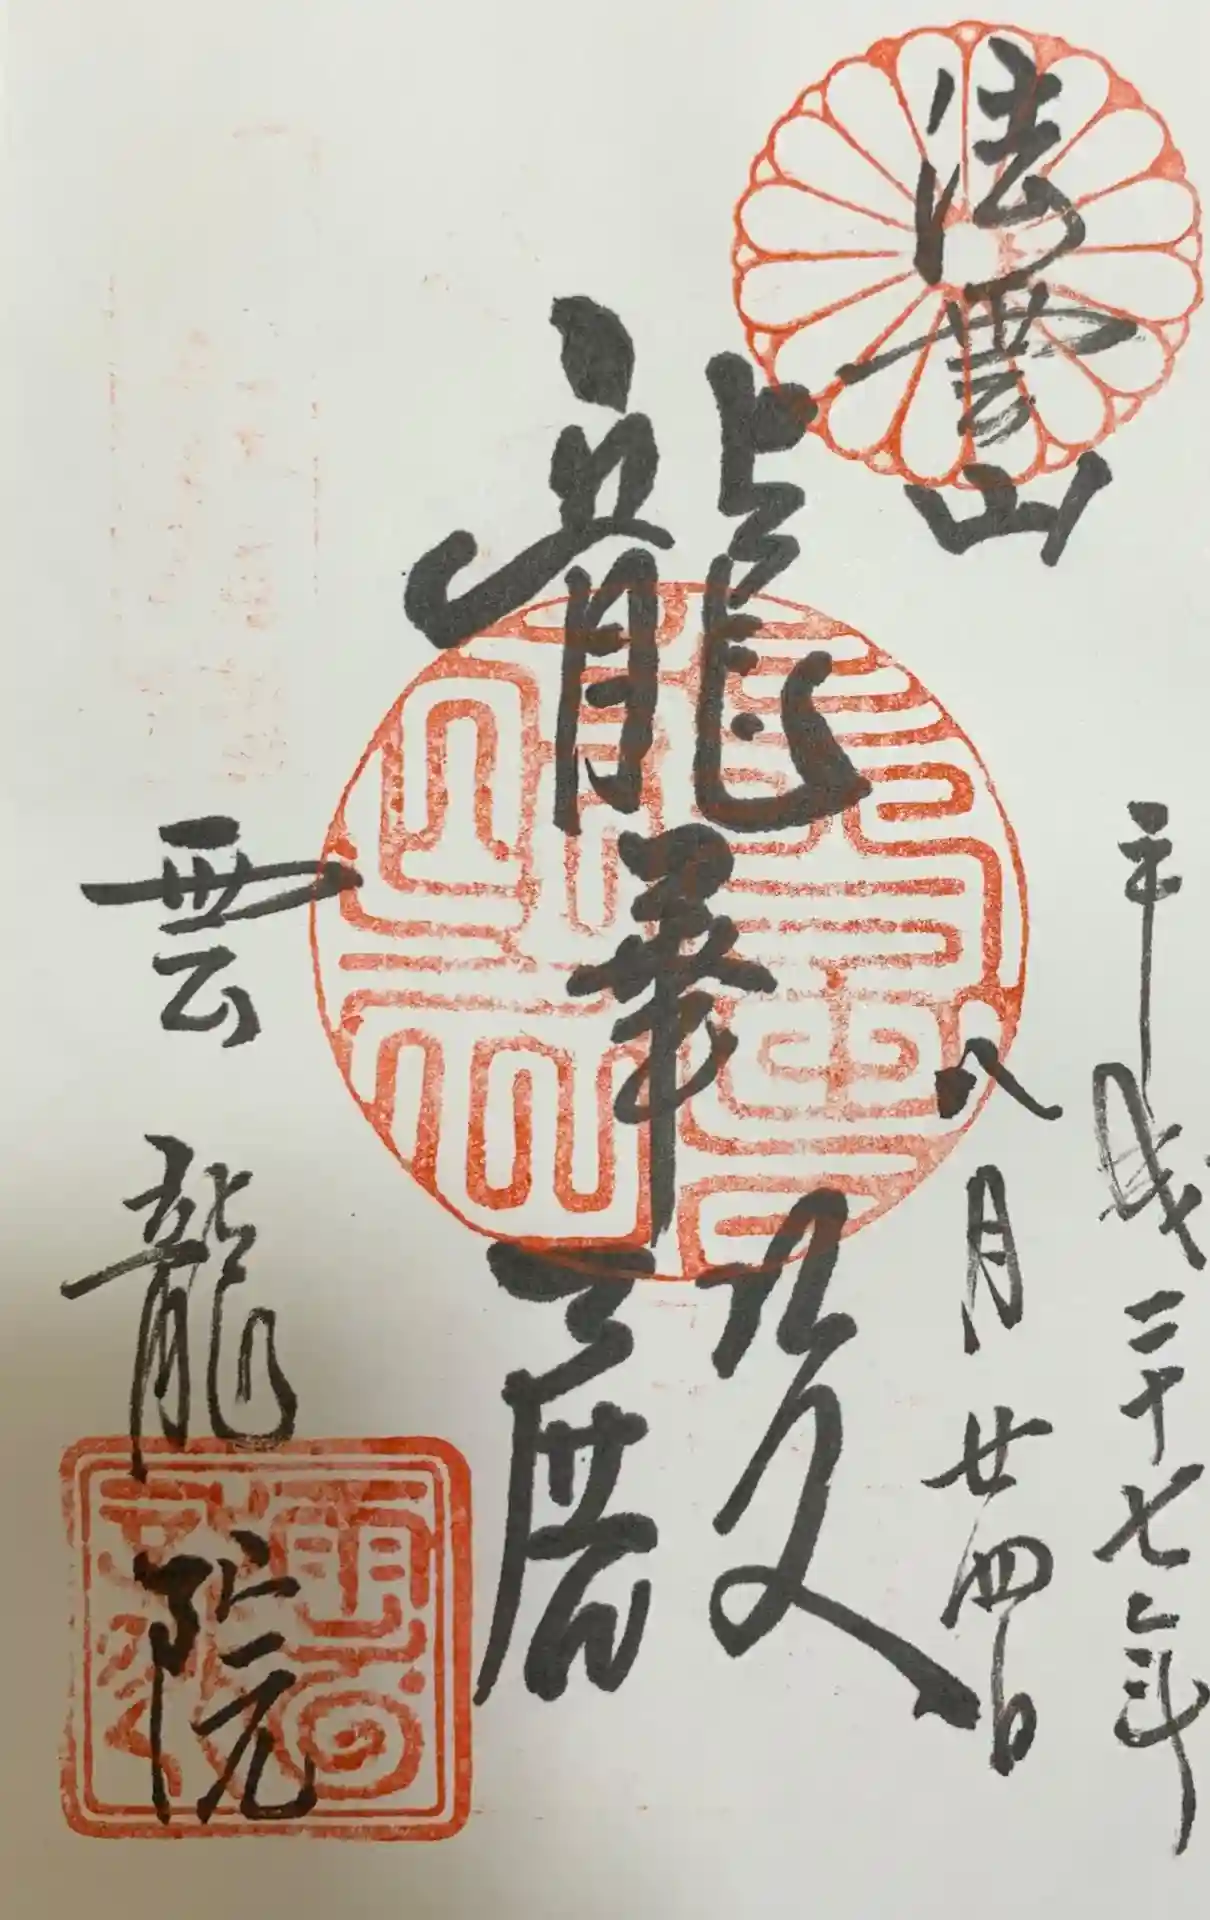 平成二十七年
八月廿四日
法雲山
龍華殿
雲龍院